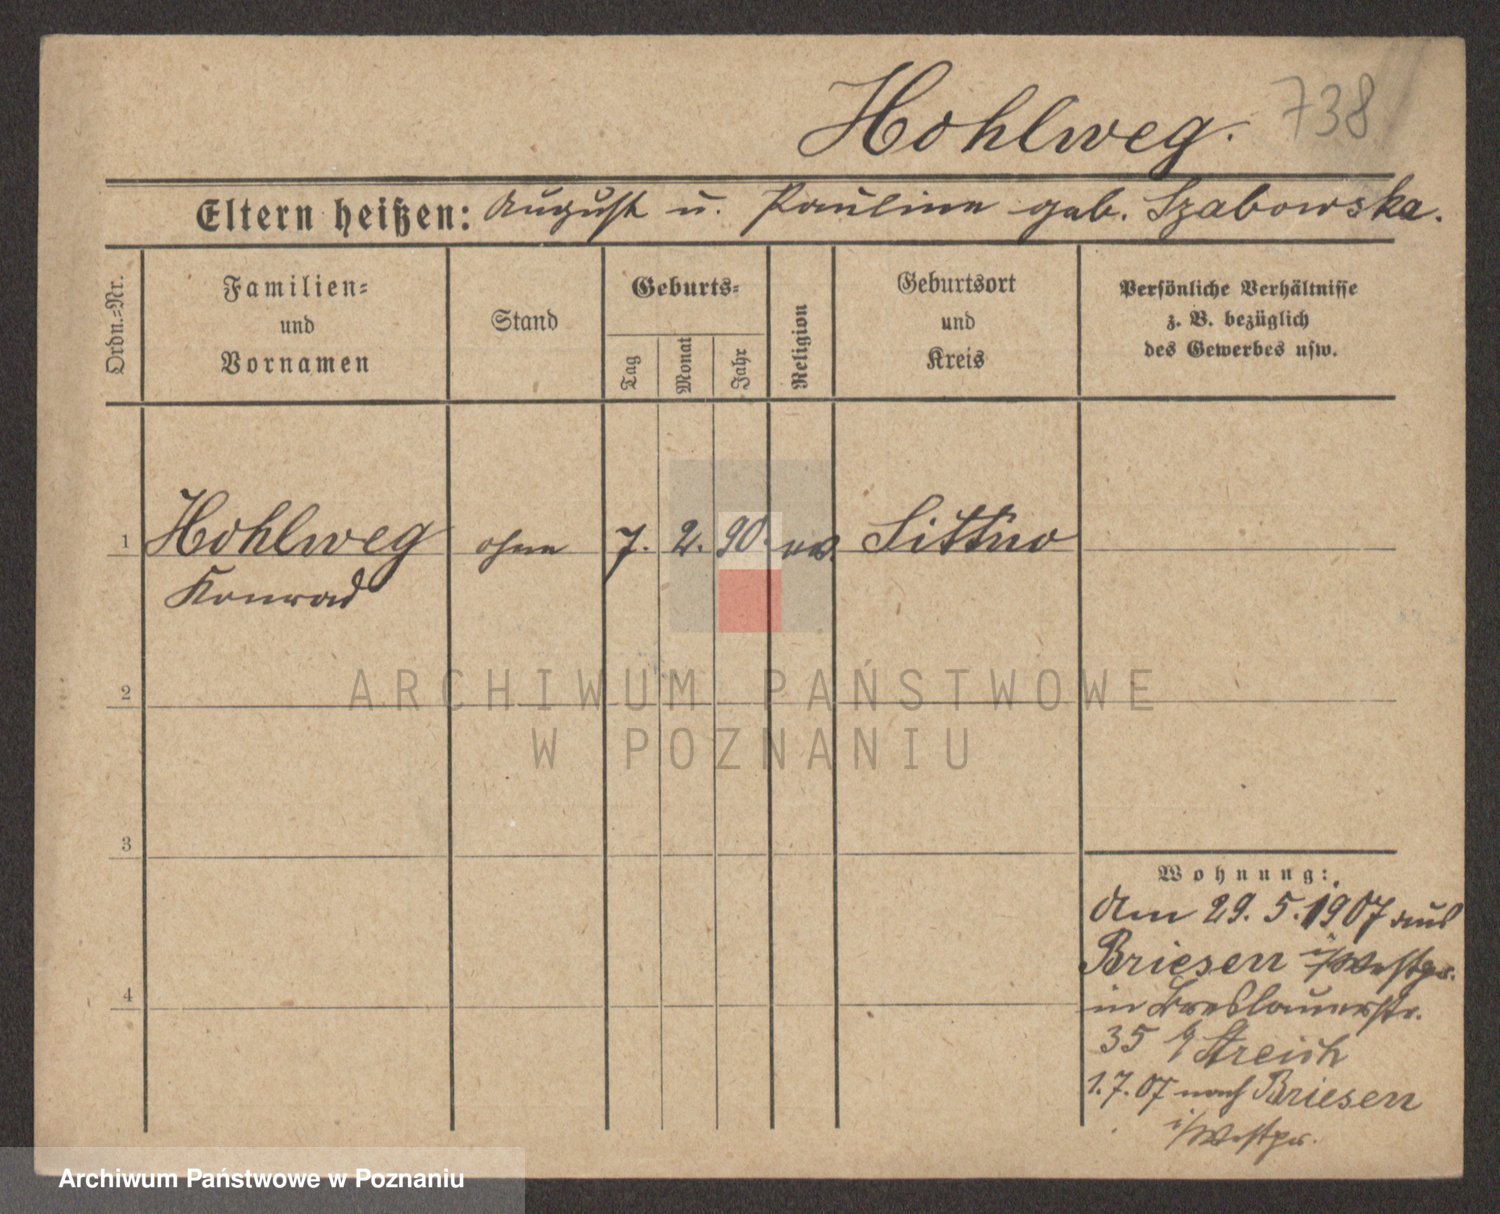 Hohlweg. 738
Eltern heißen: August u. Pauline geb. Szabowska.
Ordn.=Nr.
Familien=
und
Vornamen
Stand
Geburts=
Tag
Monat
Jahr
Religion
Geburtsort
und
Kreis
Persönliche Verhältnisse
z. B. bezüglich
des Gewerbes usw.
1 Hohlweg ohne 7. 2. 90. ev. Sittno
Konrad
2
ARCHIWUM PAŃSTWOWE
W POZNANIU
3
4
Wohnung:
Am 29. 5. 1907 aus
Briesen i/Westpr.
in Breslauerstr.
35 b/ Streich
1.7.07 nach Briesen
i/Westpr.
Archiwum Państwowe w Poznaniu